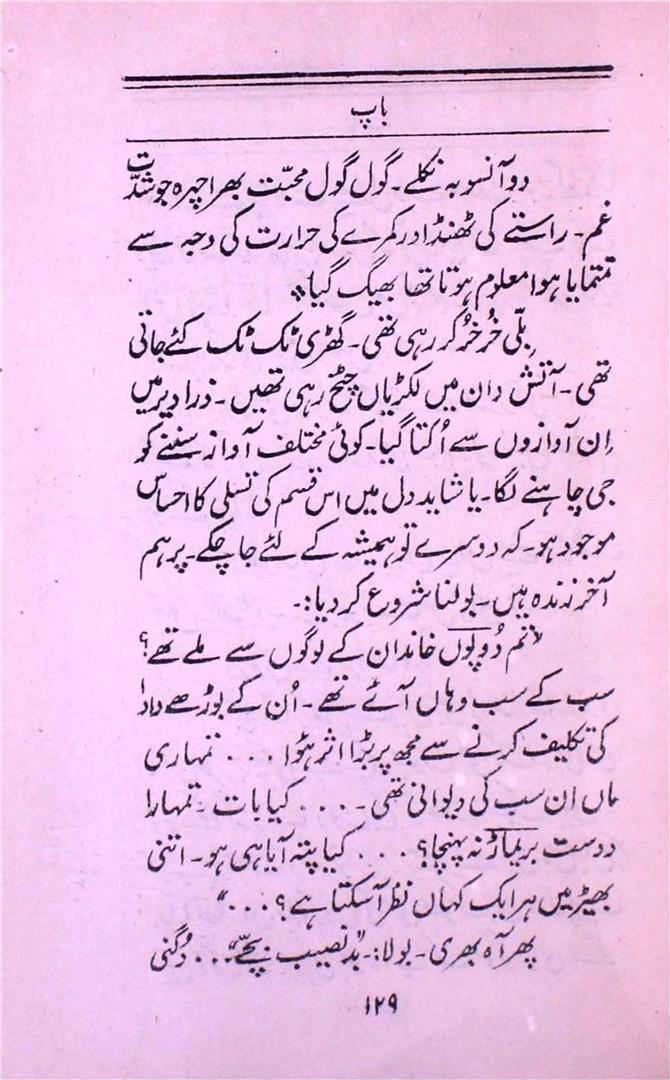 باپ
دو آنسو بہ نکلے۔ گول گول محبّت بھرا چہرہ جو شدّت
غم۔ راستے کی ٹھنڈ اور کمرے کی حرارت کی وجہ سے
تمتمایا ہوا معلوم ہوتا تھا بھیگ گیا۔
بِلّی خُرخُر کر رہی تھی۔ گھڑی ٹک ٹک کئے جاتی
تھی۔ آتش دان میں لکڑیاں چٹخ رہی تھیں۔ ذرا دیر میں
اِن آوازوں سے اُکتا گیا۔ کوئی مختلف آواز سننے کو
جی چاہنے لگا۔ یا شاید دل میں اس قسم کی تسلی کا احساس
موجود ہو۔ کہ دوسرے تو ہمیشہ کے لئے جا چکے۔ پر ہم
آخر زندہ ہیں۔ بولنا شروع کر دیا:۔
"تم دُوپوں خاندان کے لوگوں سے ملے تھے؟
سب کے سب وہاں آئے تھے۔ اُن کے بوڑھے دادا
کی تکلیف کرنے سے مجھ پر بڑا اثر ہؤا ... تمہاری
ماں ان سب کی دیوانی تھی۔ ... کیا بات۔ تمہارا
دوست بریماڑ نہ پہنچا؟ ... کیا پتہ آیا ہی ہو۔ اتنی
بھیڑ میں ہر ایک کہاں نظر آ سکتا ہے؟ ..."
پھر آہ بھری۔ بولا:۔ "بدنصیب بچّے" ... دُگنی
۱۲۹